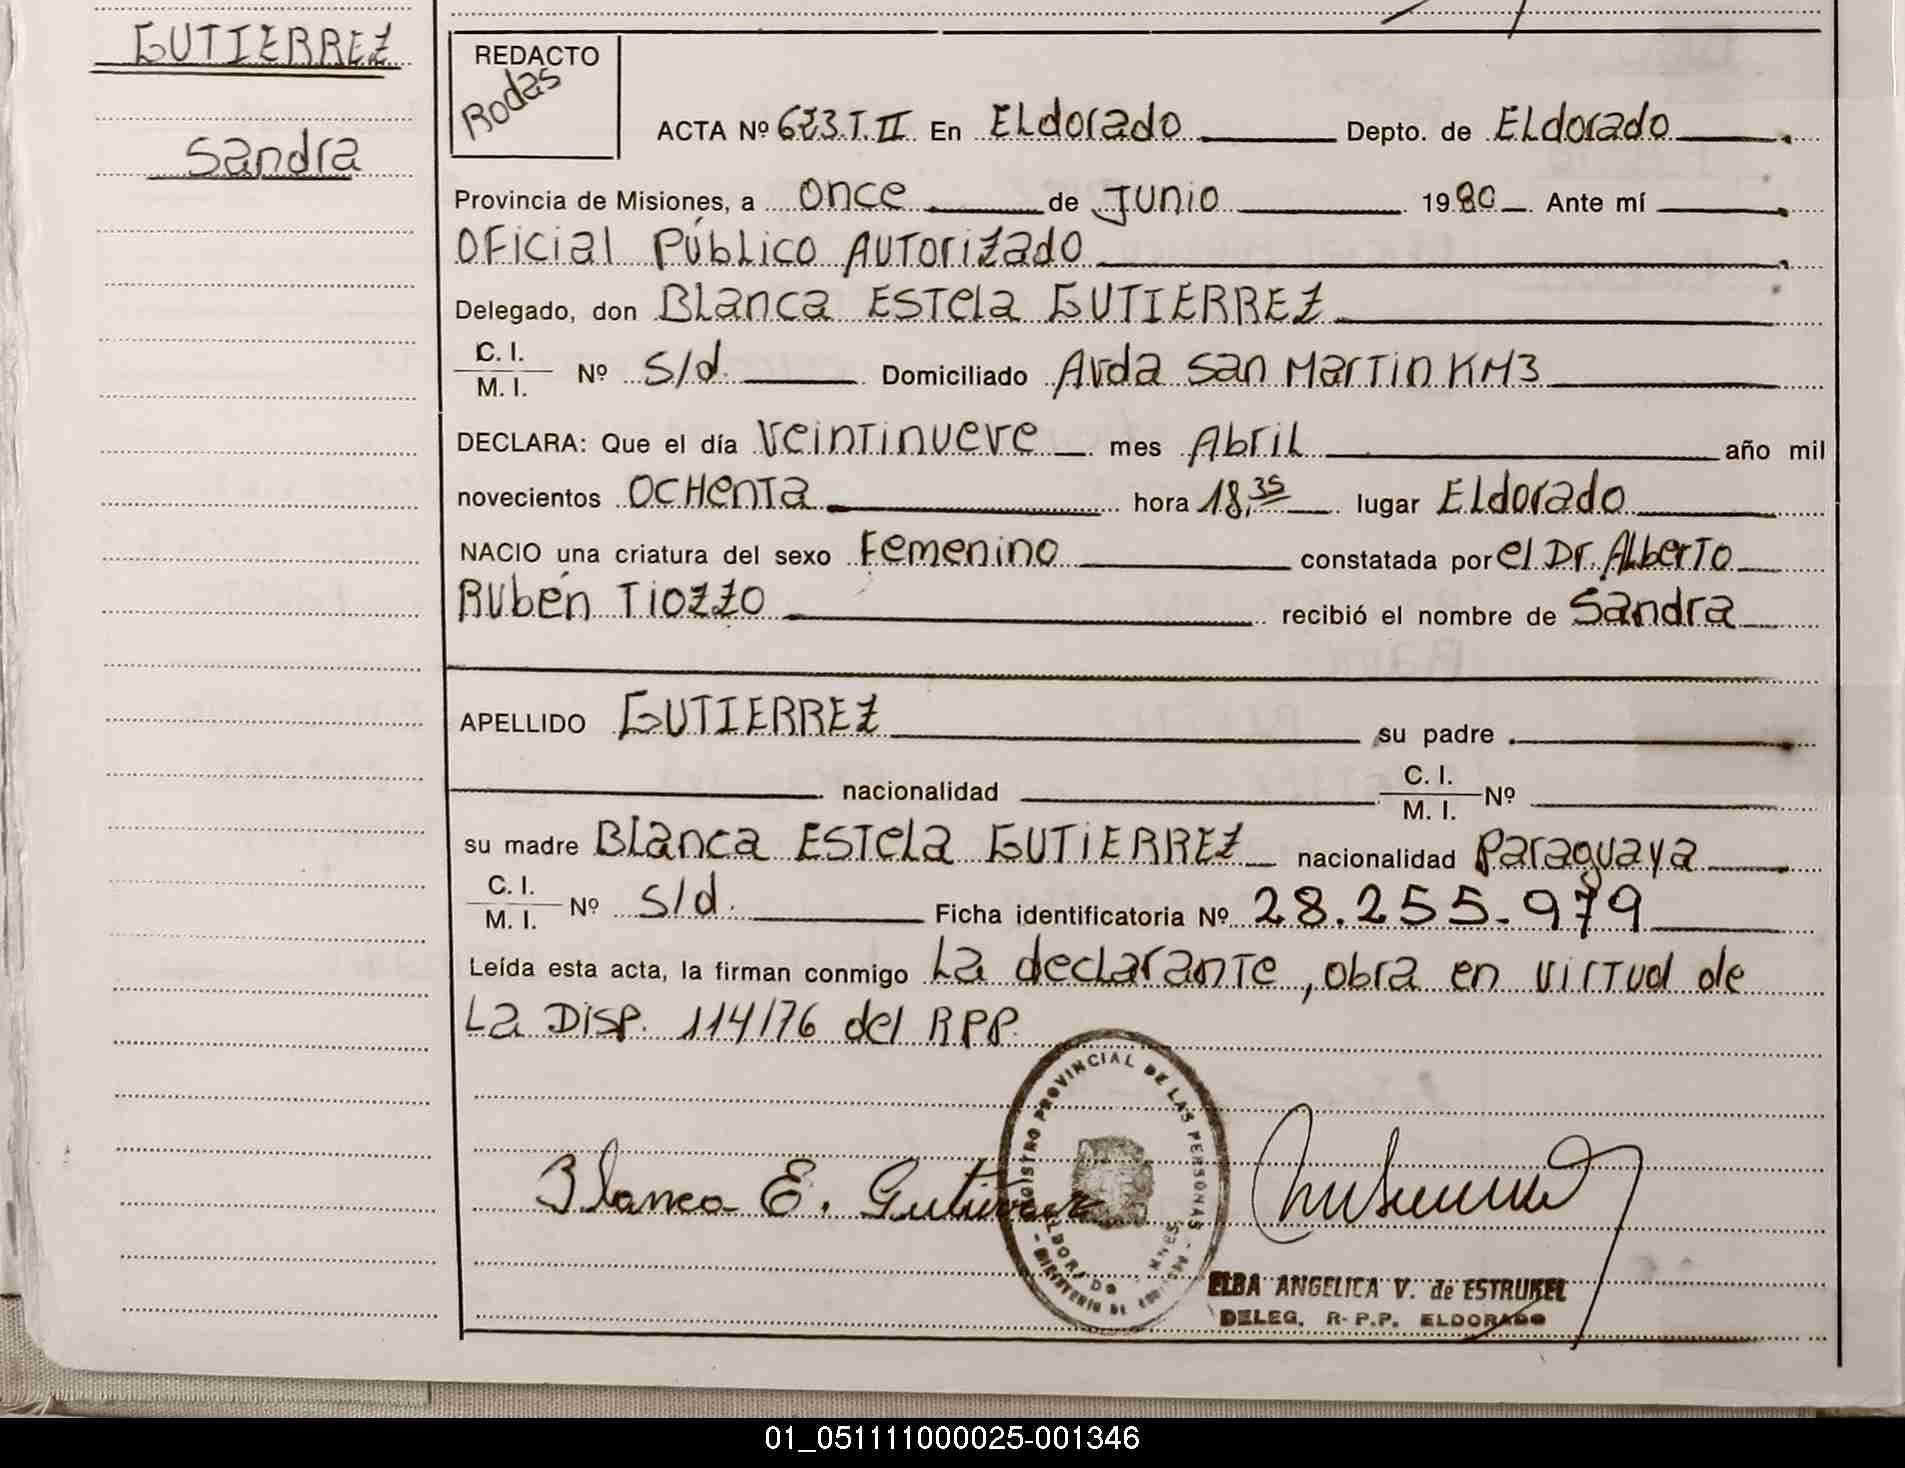 GUTIERREZ
Sandra
REDACTO
Rodas
ACTA Nº 673.T.II En ELdorado Depto. de ELdorado
Provincia de Misiones, a once de Junio 1980 Ante mí
OFicial PÚbLico AUTorizado
Delegado, don BLanca ESTela GUTIERREZ
C. I.
M. I. Nº S/d. Domiciliado Avda San MarTin KM3
DECLARA: Que el día VeinTinueve mes AbriL año mil
novecientos OCHenTa hora 18,35 lugar ELdorado
NACIO una criatura del sexo Femenino constatada por el Dr. ALberTo
RUbén TIOZZO recibió el nombre de Sandra
APELLIDO GUTIERREZ su padre
nacionalidad C. I.
M. I. Nº
su madre BLanca ESTela GUTiERREZ nacionalidad Paraguaya
C. I.
M. I. Nº S/d. Ficha identificatoria Nº 28.255.979
Leída esta acta, la firman conmigo La declaranTe, obra en virTud de
La DISP. 114/76 del RPP.
REGISTRO PROVINCIAL DE LAS PERSONAS
ELDORADO
MINISTERIO DE
Blanca E. Gutierrez
ELBA ANGELICA V. de ESTRUKEL
DELEG. R.P.P. ELDORADO
01_051111000025-001346